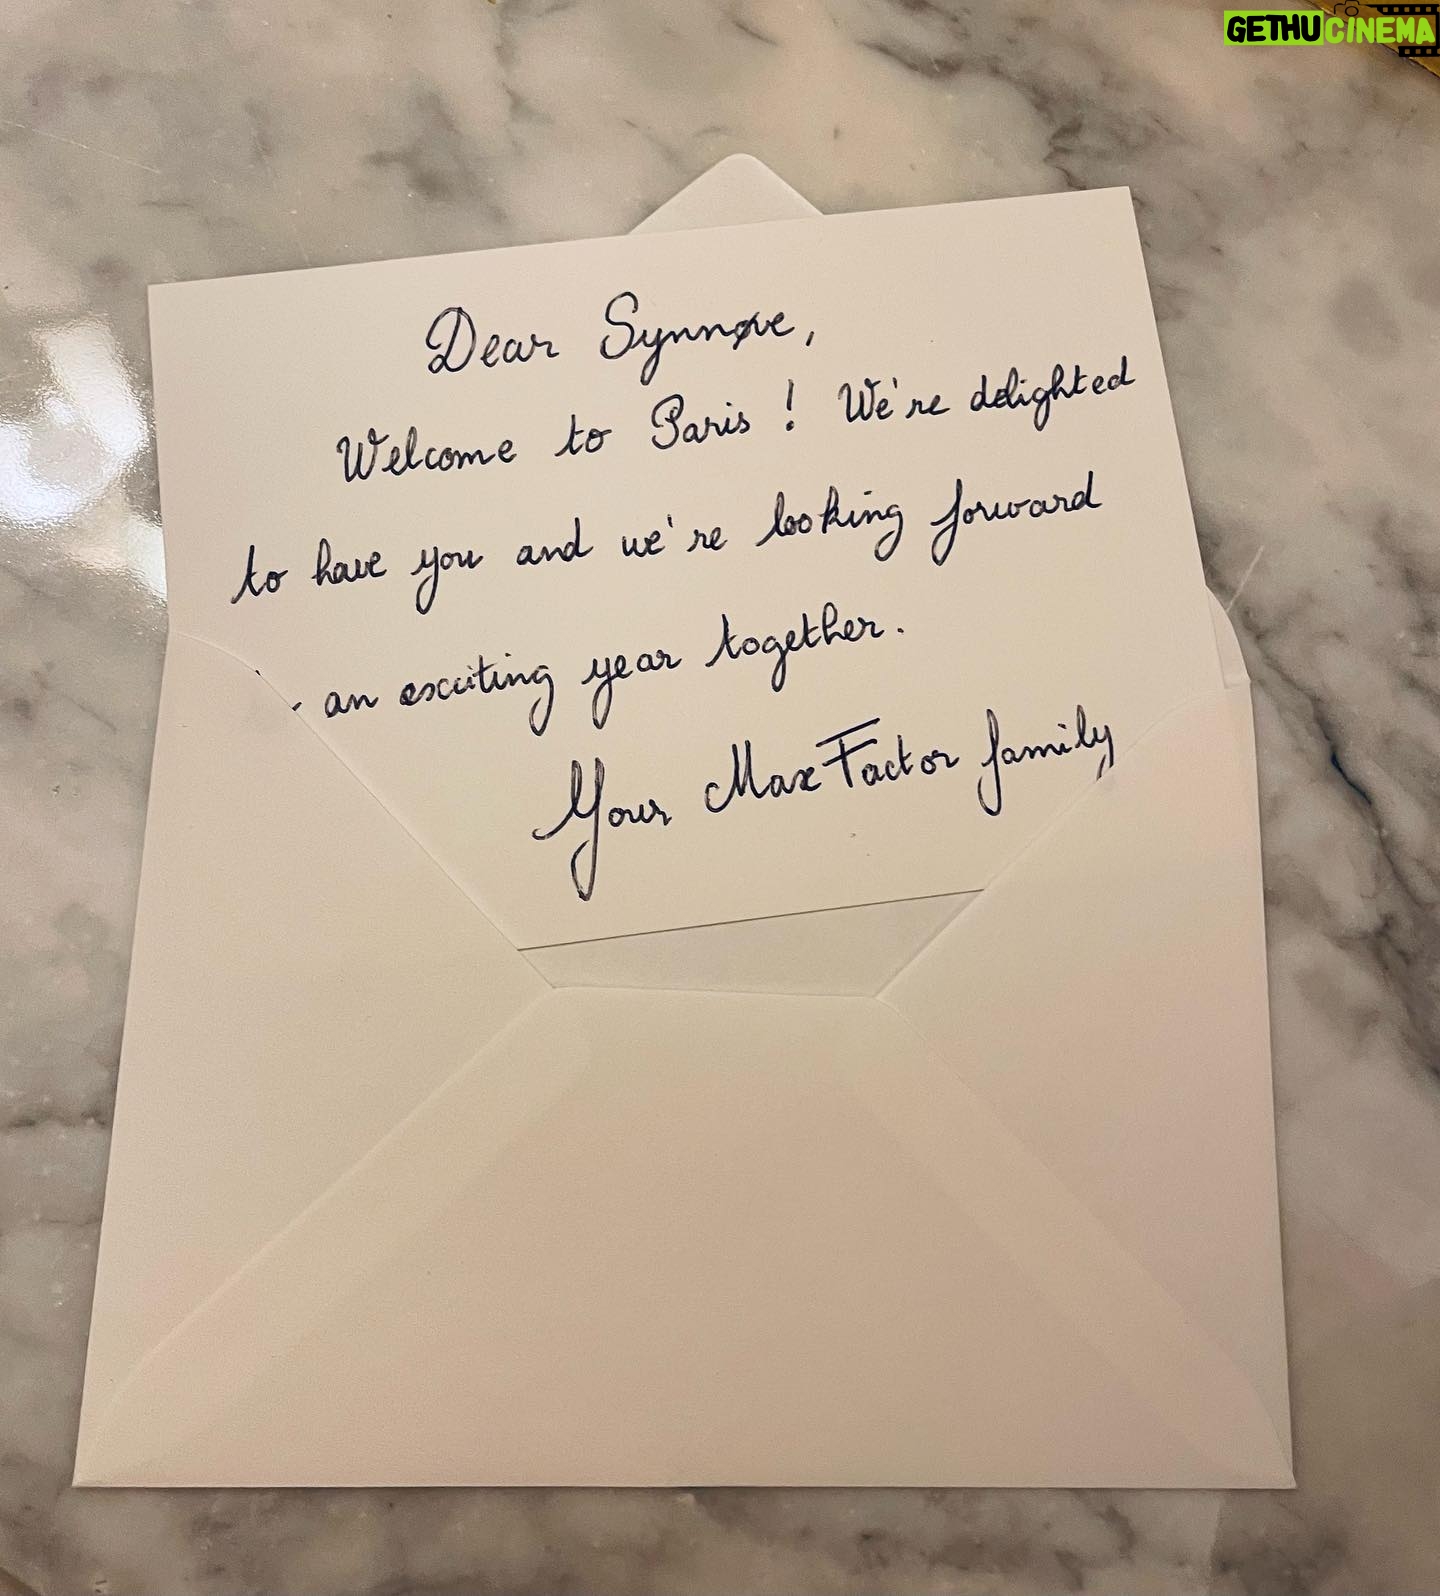 GETHUCINEMA
Dear Synnøve,
Welcome to Paris ! We're delighted
to have you and we're looking forward
an exciting year together.
Your Max Factor family